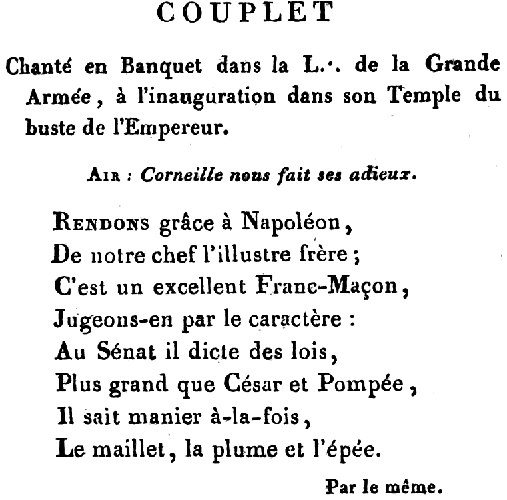 COUPLET
Chanté en Banquet dans la L.·. de la Grande
Armée, à l'inauguration dans son Temple du
buste de l'Empereur.
AIR : Corneille nous fait ses adieux.
RENDONS grâce à Napoléon,
De notre chef l'illustre frère ;
C'est un excellent Franc-Maçon,
Jugeons-en par le caractère :
Au Sénat il dicte des lois,
Plus grand que César et Pompée,
Il sait manier à-la-fois,
Le maillet, la plume et l'épée.
Par le même.